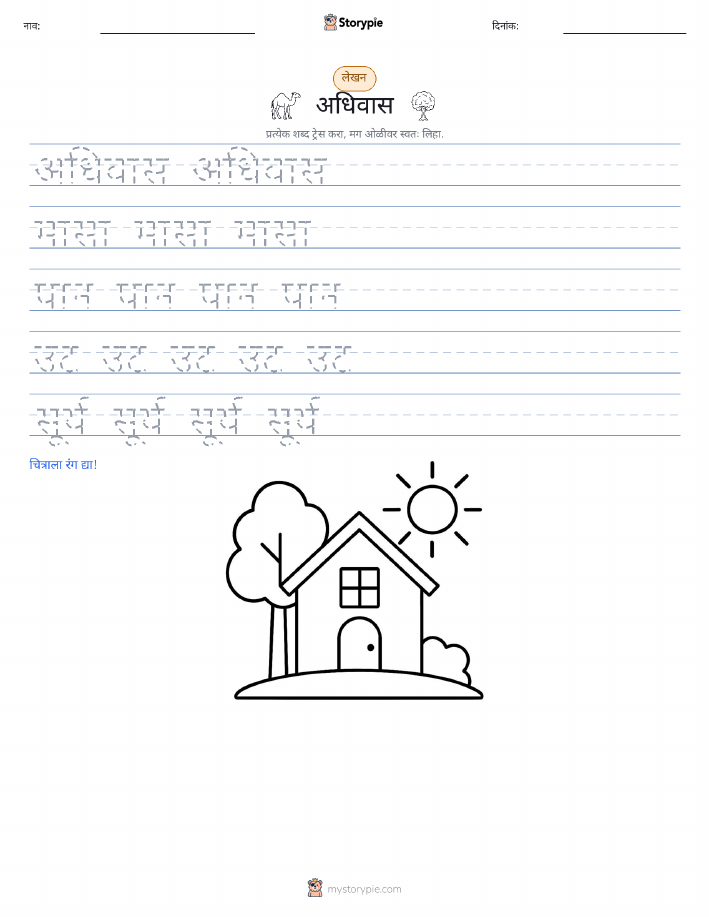 नाव:
Storypie
दिनांक:
लेखन
अधिवास
प्रत्येक शब्द ट्रेस करा, मग ओळीवर स्वतः लिहा.
अधिवास अधिवास
मासा मासा मासा
पान पान पान पान
उंट उंट उंट उंट उंट
सूर्य सूर्य सूर्य सूर्य
चित्राला रंग द्या!
mystorypie.com